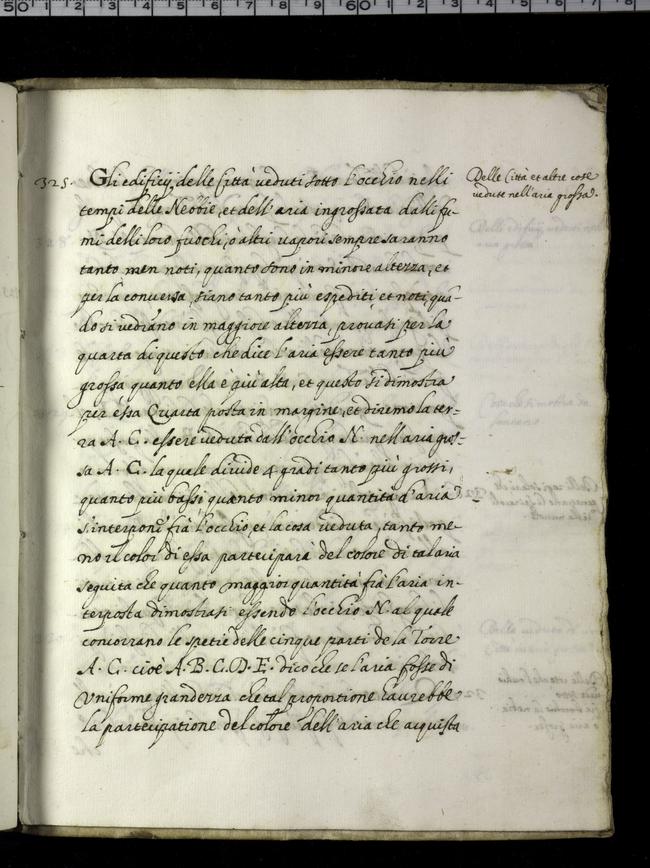 325.
Gli edificij delle Città ueduti sotto l'occhio nelli
tempi delle Nebbie, et dell'aria ingrossata dalli fu-
mi delli loro fuochi, o altri uapori sempre saranno
tanto men noti, quanto sono in minore altezza, et
per la conuersa, siano tanto più espediti et noti, quã-
do si uediano in maggiore altezza, prouasi per la
quarta di questo che dice l'aria essere tanto più
grossa quanto ella è più alta, et questo si dimostra
per essa Quarta posta in margine, et diremo la ter-
ra A. C. essere ueduta dall'occhio N. nell'aria gros-
sa A. C. la quale diuide 4 gradi tanto più grossi,
quanto più bassi quanto minor quantità d'aria
s'interpone frà l'occhio, et la cosa ueduta, tanto me-
no il color di essa parteciparà del colore di tal aria
seguita che quanto maggior quantità frà l'aria in-
terposta dimostrasi essendo l'occhio N. al quale
concorrano le spetie delle cinque parti de la Torre
A. C. cioè A. B. C. D. E. dico che se l'aria fosse di
Vniforme grandezza che tal proportione haurebbe
la partecipatione del colore dell'aria che acquista
Delle Città et altre cose
uedute nell'aria grossa.